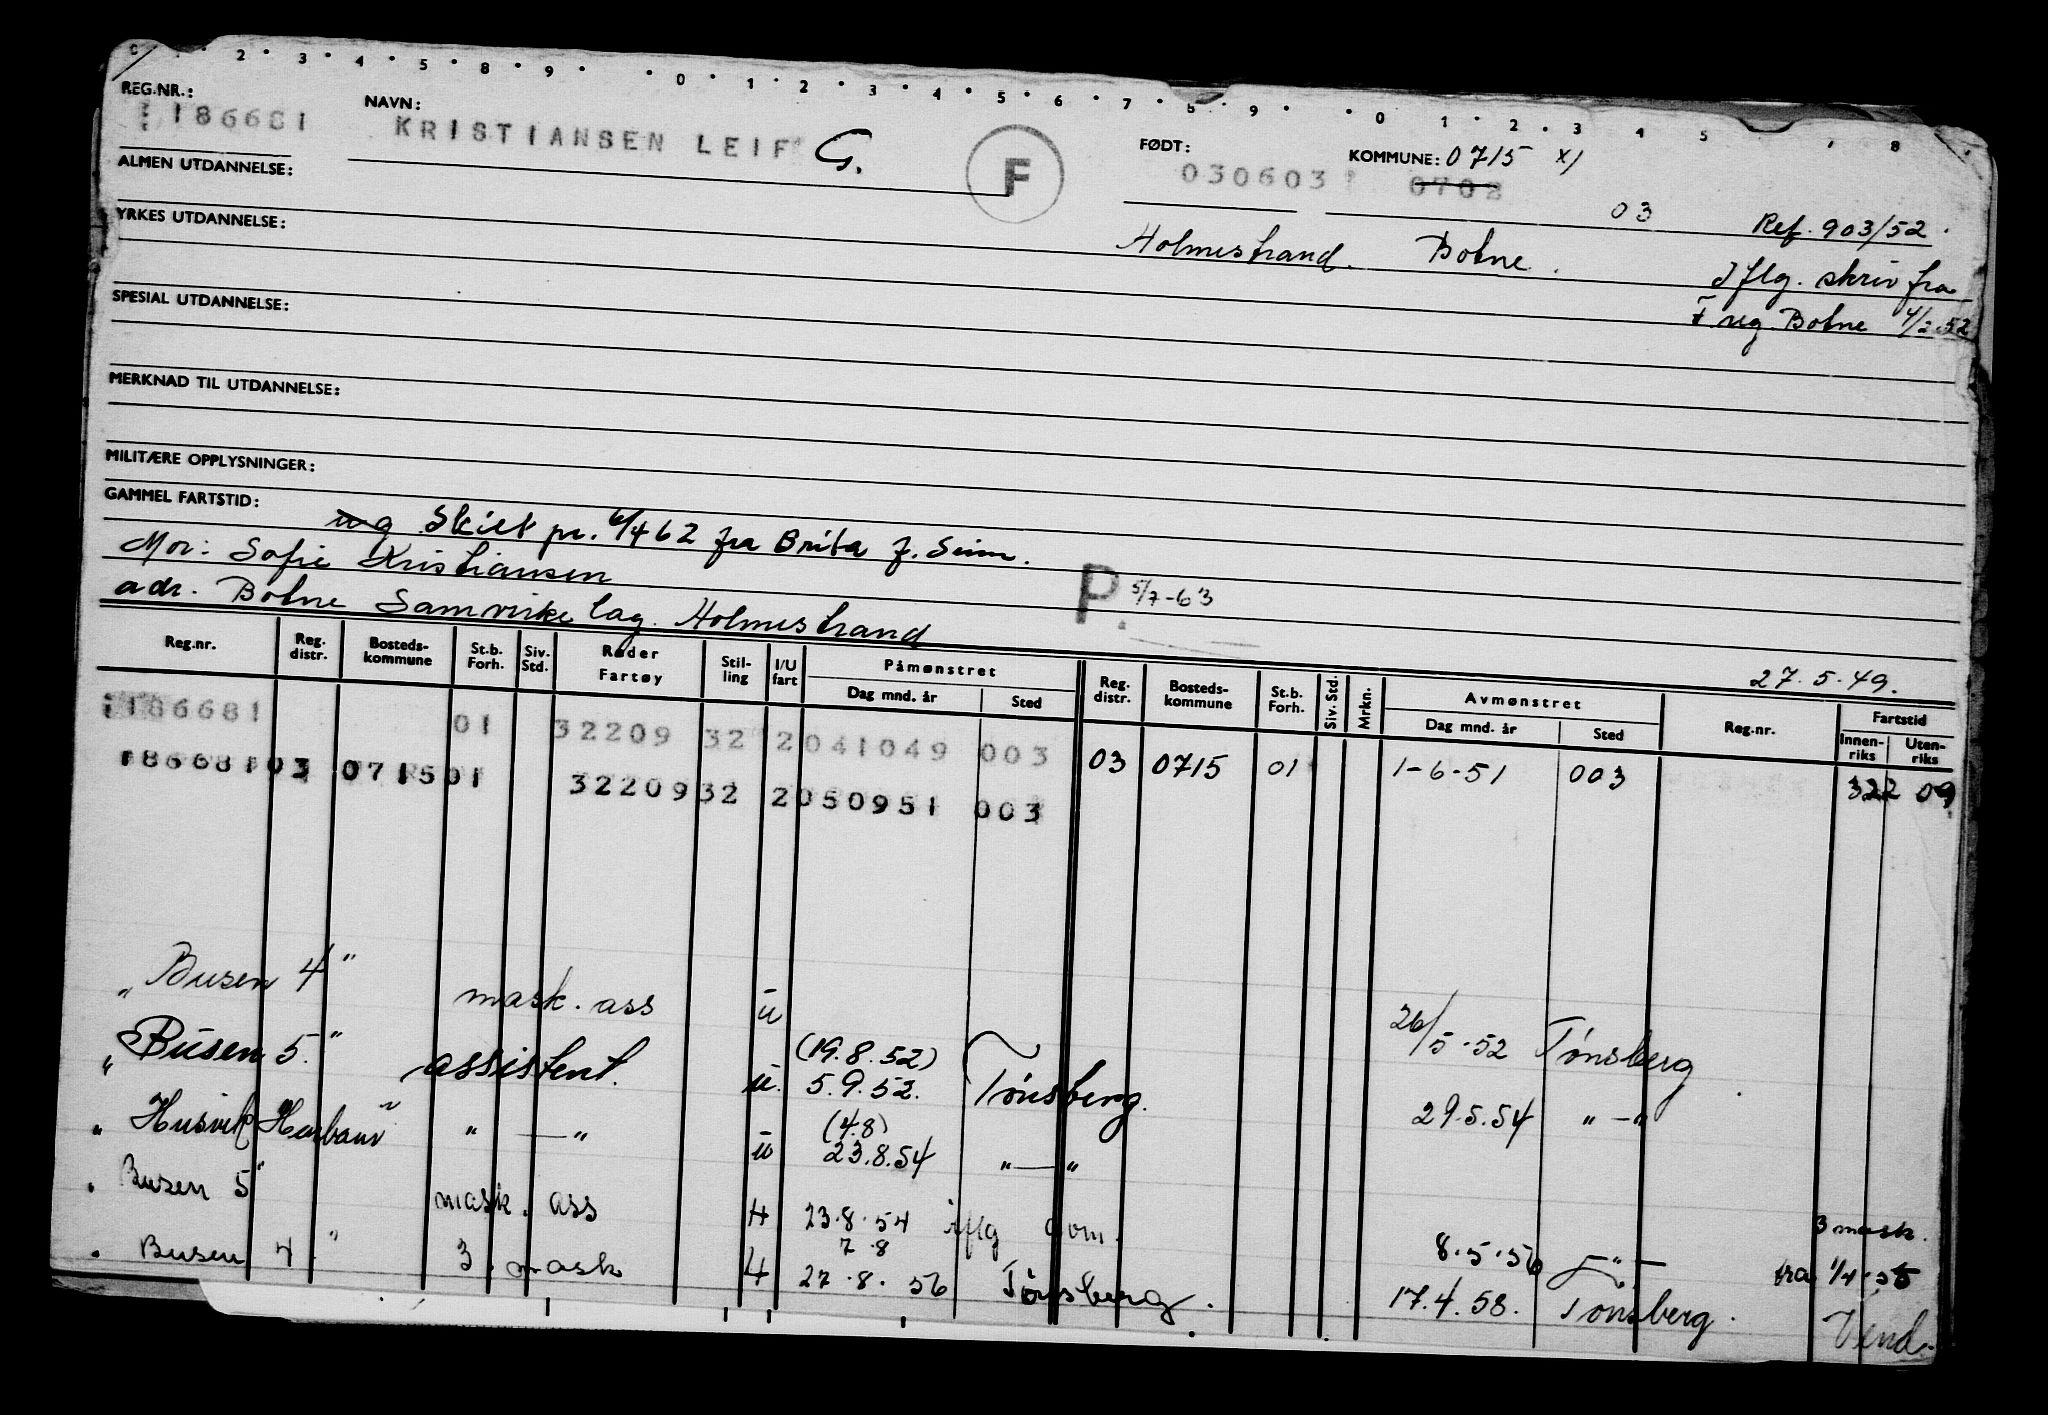 2 3 4 5 8 9 0 1 2 3 4 5 6 7 8 9 0 1 2 3 4 5 7 8
REG.NR.: 1186681
NAVN: KRISTIANSEN LEIF G.
F
FØDT: 030603
KOMMUNE: 0715 x)
0702
03
Ref. 903/52.
ALMEN UTDANNELSE:
YRKES UTDANNELSE:
Holmestrand. Botne.
Iflg. skriv fra
F reg. Botne 4/2.52
SPESIAL UTDANNELSE:
MERKNAD TIL UTDANNELSE:
MILITÆRE OPPLYSNINGER:
GAMMEL FARTSTID:
ug Skilt pr. 6/4 62 fra Brita f. Seim.
Mor: Sofie Kristiansen
adr. Botne Samvirkelag. Holmestrand
P. 5/7-63
27.5.49.
Reg.nr. Reg. distr. Bosteds-kommune St.b. Forh. Siv. Std. Reder Fartøy Stil-ling I/U fart Påmønstret Dag mnd. år Sted Reg. distr. Bosteds-kommune St.b. Forh. Siv. Std. Mrkn. Avmønstret Dag mnd. år Sted Reg.nr. Fartstid Innen-riks Uten-riks
1186681 01 32209 32 2 041049 003 03 0715 01 1-6-51 003 322 09
186681 03 0715 01 32209 32 2 050951 003
"Busen 4" mask. ass u 26/5-52 Tønsberg
"Busen 5." assistent. u. (19.8.52) 5.9.52. Tønsberg. 29.5.54 " — "
"Husvik Harbour" " — " u (4.8) 23.8.54 " — "
"Busen 5" mask. ass 4 23.8.54 iflg dom. 8.5.56 " — 3 mask.
7.8 fra 1/4.55
"Busen 4." 3. mask 4 27.8.56 Tønsberg. 17.4.58. Tønsberg. Vend.